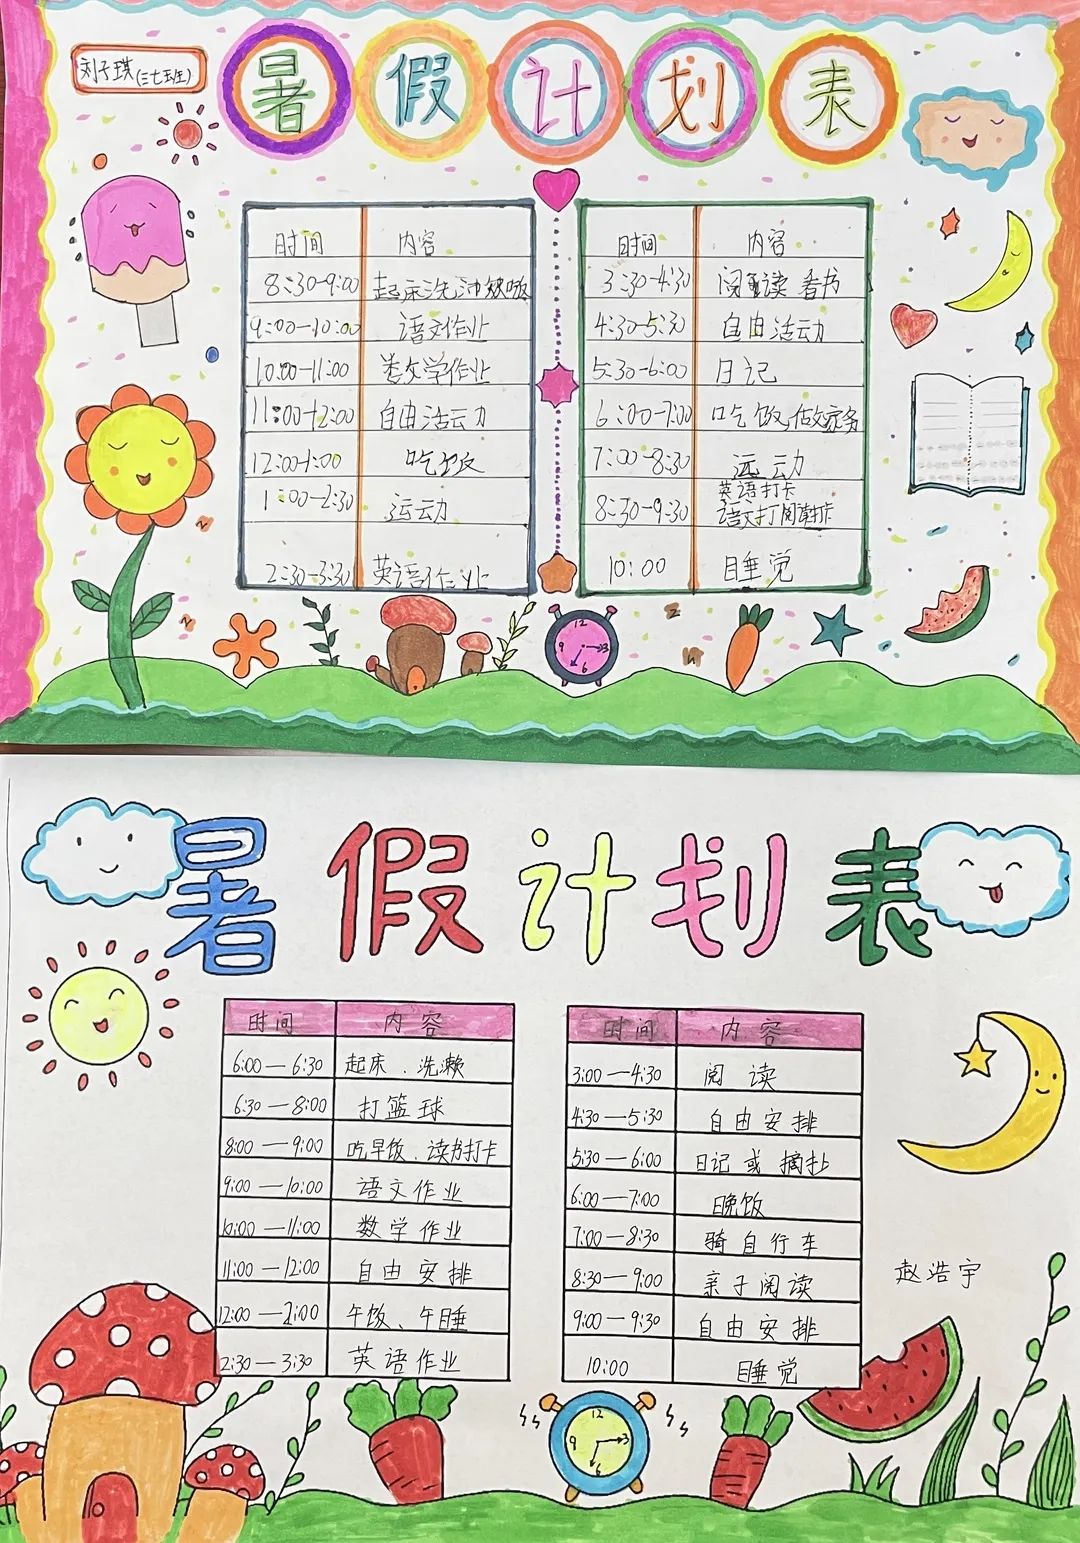 刘子琪(三七五班)
暑假计划表
时间 内容
8:30-9:00 起床洗漱吃饭
9:00-10:00 语文作业
10:00-11:00 数学作业
11:00-12:00 自由活动
12:00-1:00 吃饭
1:00-2:30 运动
2:30-3:30 英语作业
时间 内容
3:30-4:30 阅读看书
4:30-5:30 自由活动
5:30-6:00 日记
6:00-7:00 吃饭,做家务
7:00-8:30 运动
英语打卡
8:30-9:30 语文打卡
10:00 睡觉
12
9 3
6
暑假计划表
时间 内容
6:00—6:30 起床、洗漱
6:30—8:00 打篮球
8:00—9:00 吃早饭、读书打卡
9:00—10:00 语文作业
10:00—11:00 数学作业
11:00—12:00 自由安排
12:00—2:00 午饭、午睡
2:30—3:30 英语作业
时间 内容
3:00—4:30 阅读
4:30—5:30 自由安排
5:30—6:00 日记或摘抄
6:00—7:00 晚饭
7:00—8:30 骑自行车
8:30—9:00 亲子阅读
9:00—9:30 自由安排
10:00 睡觉
赵浩宇
12
9 3
6